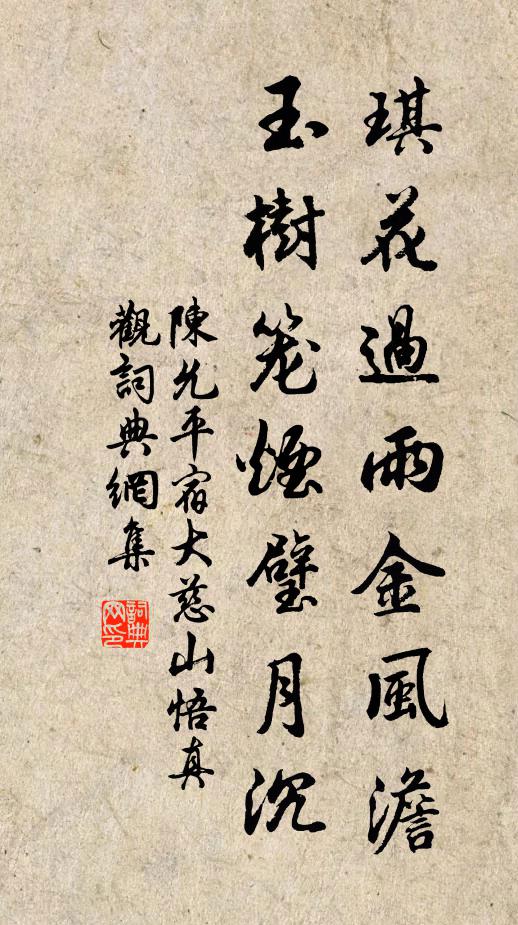 琪花過雨金風澹
玉樹笼煙璧月沉
陳允平宿大慈山悟真
觀詞典網集
詞典网印